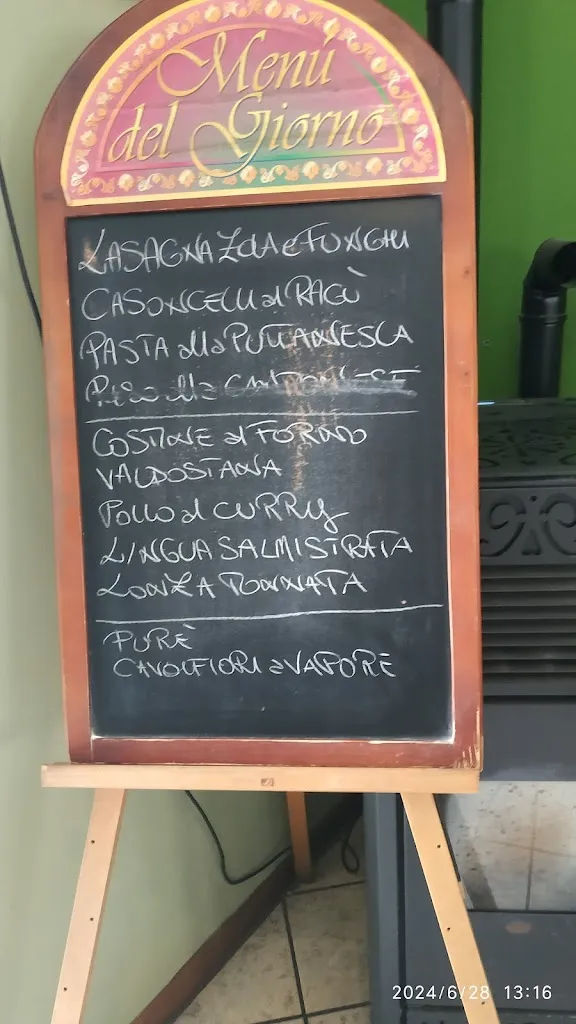 Menú
del Giorno
LASAGNA ZOLA e FUNGHI
CASONCELLI al RAGÙ
PASTA alla PUTTANESCA
RISO alla CANTONESE
COSTINE al FORNO
VALDOSTANA
POLLO al CURRY
LINGUA SALMISTRATA
LONZA TONNATA
PURÈ
CAVOLFIORI a VAPORE
2024/6/28 13:16